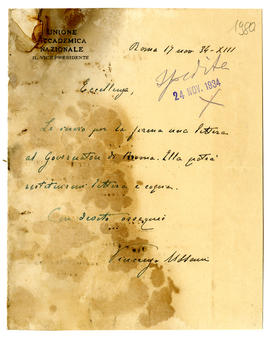 1980
UNIONE
ACCADEMICA
NAZIONALE
IL VICE PRESIDENTE
Roma 17 nov. 34-XIII
Spedita
24 NOV. 1934
X
Eccellenza,
Le invio per la firma una lettera
al Governatore di Roma. Ella potrà
restituirmi lettera e copia.
Con devoti ossequi
Vincenzo Ussani